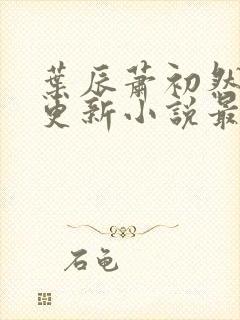 葉辰蕭初然
更新小說最
石龜